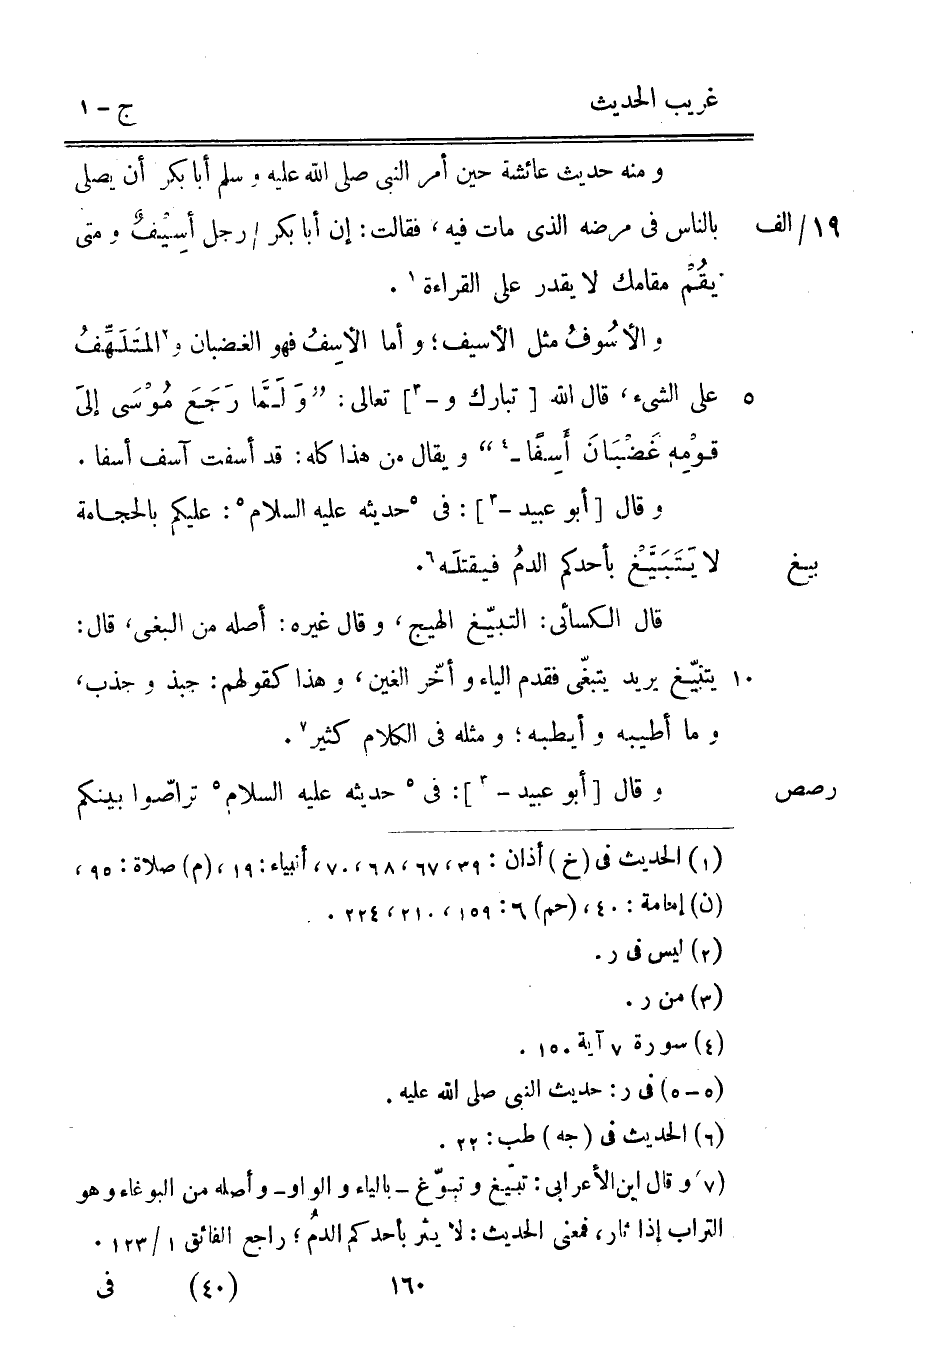 غريب الحديث ج - ١
و منه حديث عائشة حين أمر النبى صلى الله عليه و سلم أبا بكر أن يصلى
١٩/ الف بالناس فى مرضه الذى مات فيه، فقالت: إن أبا بكر / رجل أسِيْفٌ و متى
يقُمْ مقامك لا يقدر على القراءة١ .
و الأسُوفُ مثل الأسيف؛ و أما الأسِفُ فهو الغضبان و٢المتَلَهِّفُ
٥ على الشىء، قال الله [ تبارك و -٣] تعالى: ”وَ لَـمَّا رَجَعَ مُوْسَى إلىَ
قـوْمِهٖ غَضْبَانَ أَسِفًا ـ٤“ و يقال من هذا كله: قد أسفت آسف أسفا .
و قال [أبو عبيد -٣] : فى ٥حديثه عليه السلام٥: عليكم بالحجامة
بيغ لا يَتَبَيَّغْ بأحدكم الدمُ فـيقتلَه٦.
قال الكسائى: التبيّغ الهيج، و قال غيره: أصله من البغى، قال:
١٠ يتبيّغ يريد يتبغّى فقدم الياء و أخّر الغين، و هذا كقولهم: جبذ و جذب،
و ما أطيبه و أيطبه؛ و مثله فى الكلام كثير٧ .
رصص و قال [أبو عبيد -٣]: فى ٥ حديثه عليه السلام٥ تراصّوا بينكم
(١) الحديث فى (خ) أذان : ٣٩، ٦٧، ٦٨، ٧٠، أنبياء: ١٩، (م) صلاة : ٩٥،
(ن) إمامة : ٤٠، (حم) ٦: ١٥٩، ٢١٠، ٢٢٤ .
(٢) ليس فى ر .
(٣) من ر .
(٤) سورة ٧ آية ١٥٠ .
(٥-٥) فى ر: حديث النبى صلى الله عليه .
(٦) الحديث فى (جه) طب: ٢٢ .
(٧) و قال ابن الأعرابى: تبيّغ و تبوّغ ـ بالياء و الواو ـ و أصله من البوغاء و هو
التراب إذا ثار، فمعنى الحديث: لا يثُر بأحدكم الدمُ؛ راجع الفائق ١/ ١٢٣ .
١٦٠ (٤٠) فى